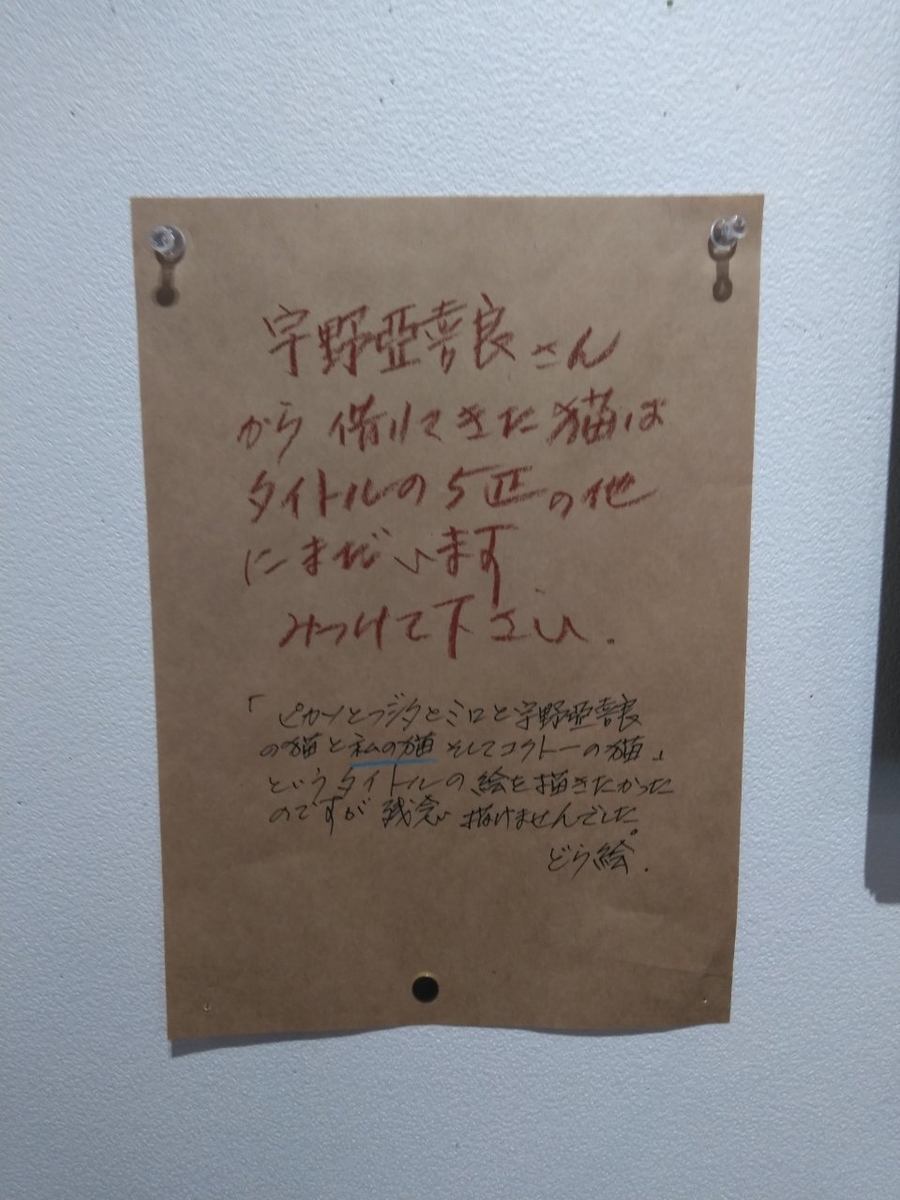 宇野亞喜良さん
から借りてきた猫は
タイトルの5匹の他
にまだいます
みつけて下さい.
「ピカソとフジタとミロと宇野亞喜良
の猫と私の猫そしてコクトーの猫」
というタイトルの絵を描きたかった
のですが残念 描けませんでした。
どら絵.